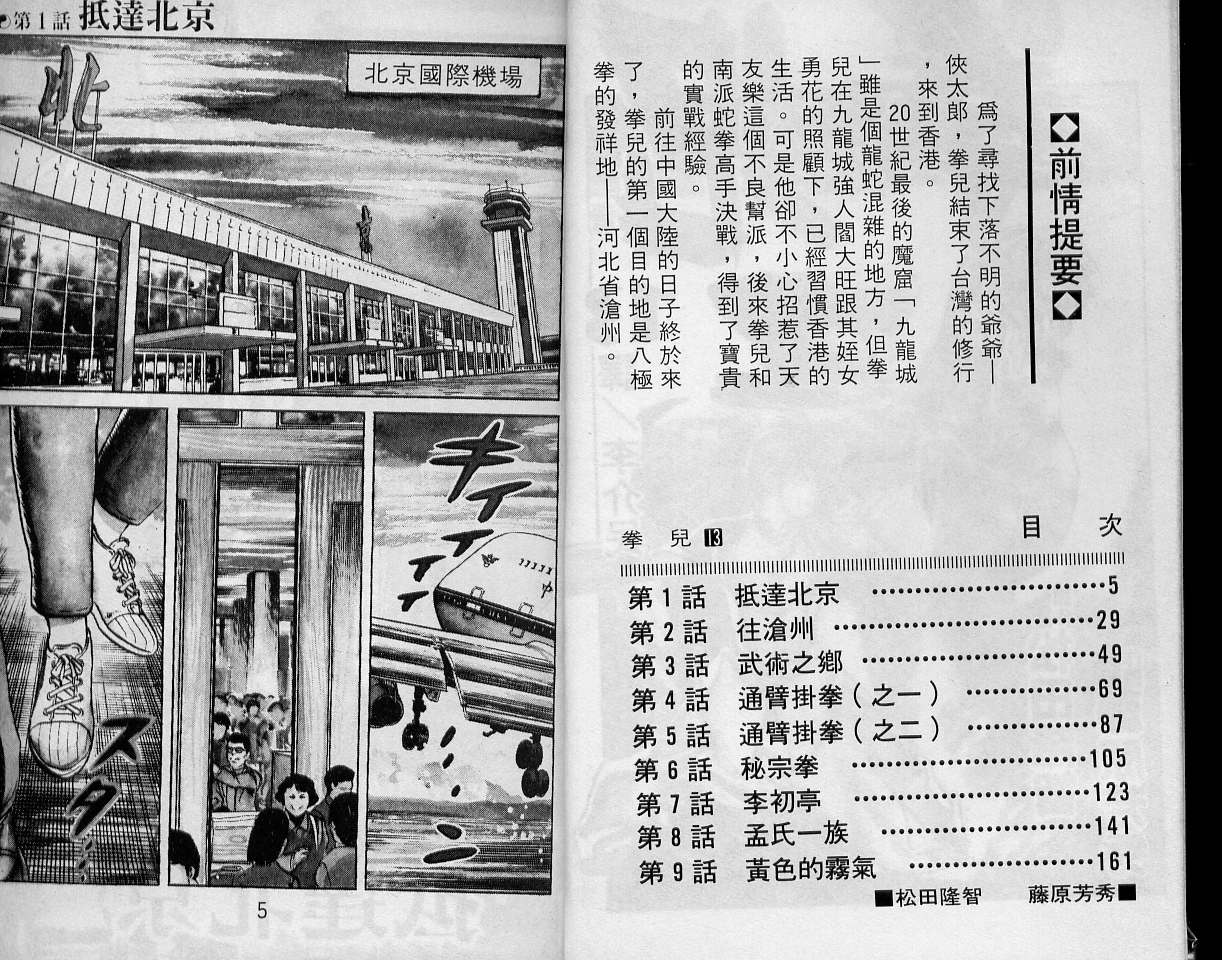 ◆前情提要◆
為了尋找下落不明的爺爺—
俠太郎，拳兒結束了台灣的修行
，來到香港。
20世紀最後的魔窟「九龍城
」雖是個龍蛇混雜的地方，但拳
兒在九龍城強人閻大旺跟其姪女
勇花的照顧下，已經習慣香港的
生活。可是他卻不小心招惹了天
友樂這個不良幫派，後來拳兒和
南派蛇拳高手決戰，得到了寶貴
的實戰經驗。
前往中國大陸的日子終於來
了，拳兒的第一個目的地是八極
拳的發祥地——河北省滄州。
拳兒13
目次
第1話 抵達北京 ……………………5
第2話 往滄州 ……………………29
第3話 武術之鄉 ……………………49
第4話 通臂掛拳（之一） ……………69
第5話 通臂掛拳（之二） ……………87
第6話 秘宗拳 ……………………105
第7話 李初亭 ……………………123
第8話 孟氏一族 ……………………141
第9話 黃色的霧氣 …………………161
■松田隆智 藤原芳秀■
第1話 抵達北京
北京國際機場
北
キイイイイイ
中
スタ……
5